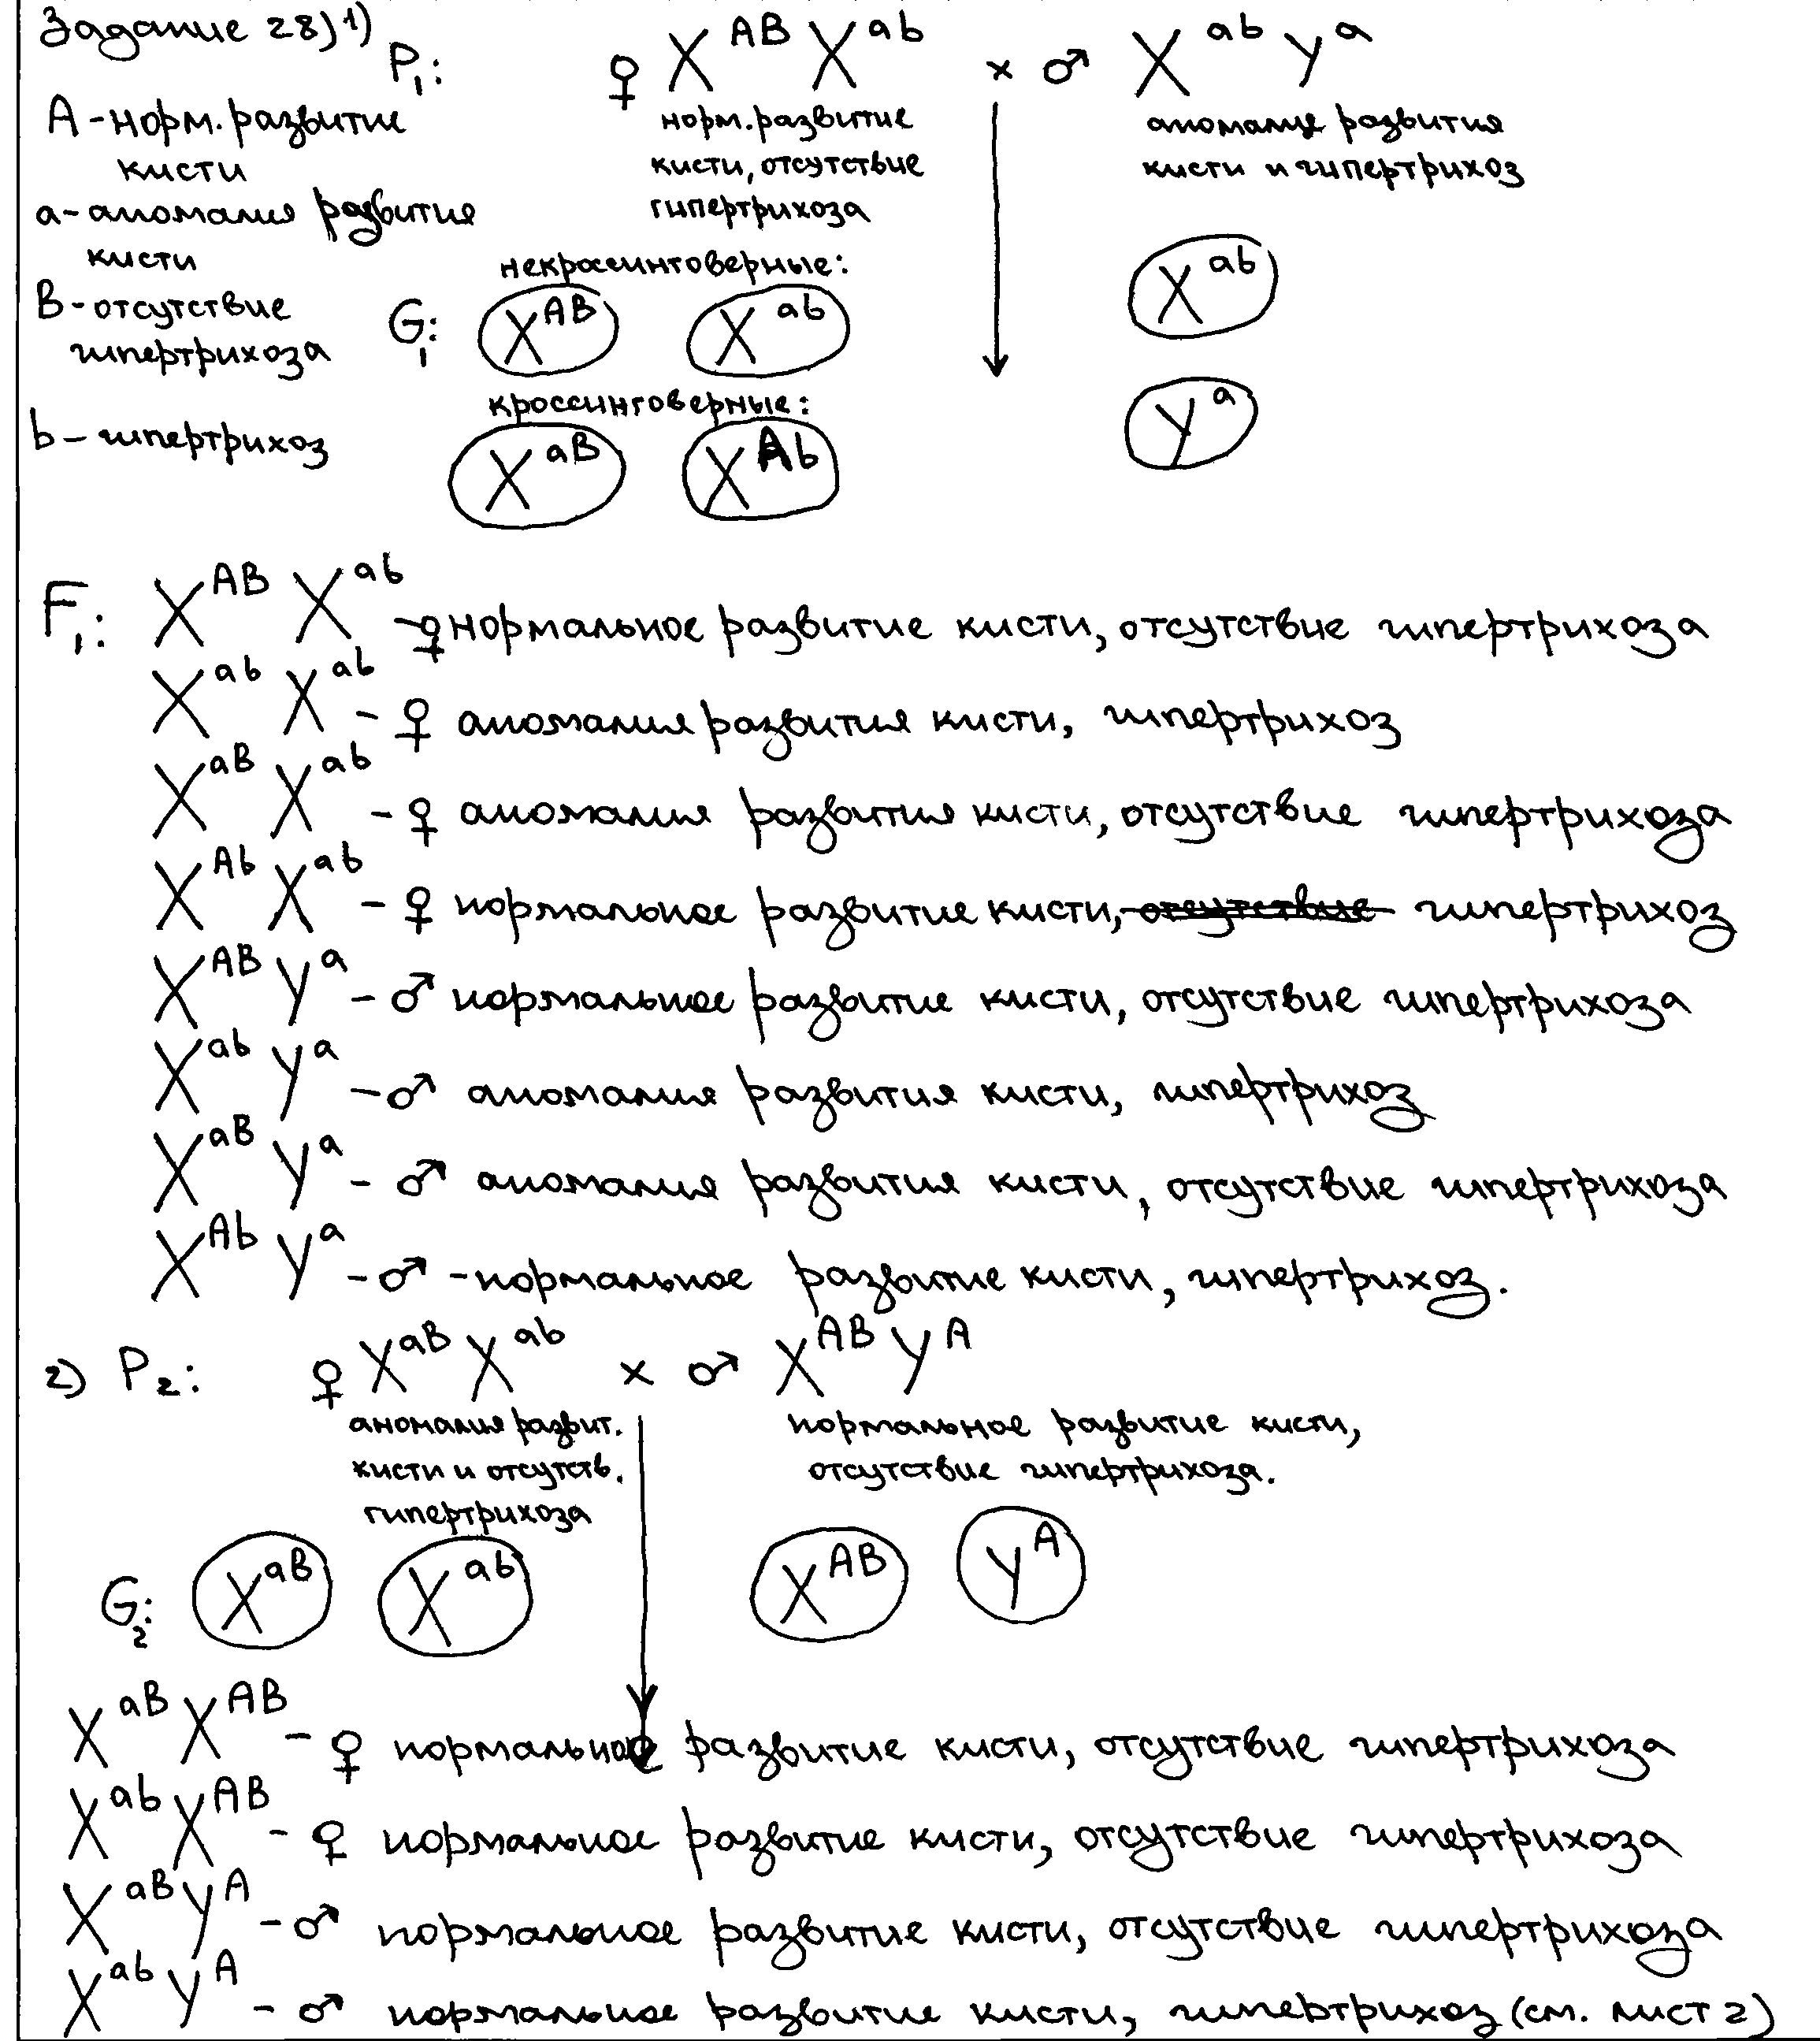 Задание 28) 1)
P₁: ♀ X^AB X^ab × ♂ X^ab Y^a
A - норм. развитие кисти
a - аномалия развития кисти
B - отсутствие гипертрихоза
b - гипертрихоз
норм. развитие
кисти, отсутствие
гипертрихоза
аномалия развития
кисти и гипертрихоз
некроссинговерные:
G₁: X^AB X^ab X^ab
кроссинговерные: Y^a
X^aB X^Ab
F₁: X^AB X^ab - ♀ нормальное развитие кисти, отсутствие гипертрихоза
X^ab X^ab - ♀ аномалия развития кисти, гипертрихоз
X^aB X^ab - ♀ аномалия развития кисти, отсутствие гипертрихоза
X^Ab X^ab - ♀ нормальное развитие кисти, отсутствие гипертрихоз
X^AB Y^a - ♂ нормальное развитие кисти, отсутствие гипертрихоза
X^ab Y^a - ♂ аномалия развития кисти, гипертрихоз
X^aB Y^a - ♂ аномалия развития кисти, отсутствие гипертрихоза
X^Ab Y^a - ♂ - нормальное развитие кисти, гипертрихоз.
2) P₂: ♀ X^aB X^ab × ♂ X^AB Y^A
аномалия развит.
кисти и отсутств.
гипертрихоза
нормальное развитие кисти,
отсутствие гипертрихоза.
G₂: X^aB X^ab X^AB Y^A
X^aB X^AB - ♀ нормальное развитие кисти, отсутствие гипертрихоза
X^ab X^AB - ♀ нормальное развитие кисти, отсутствие гипертрихоза
X^aB Y^A - ♂ нормальное развитие кисти, отсутствие гипертрихоза
X^ab Y^A - ♂ нормальное развитие кисти, гипертрихоз (см. лист 2)